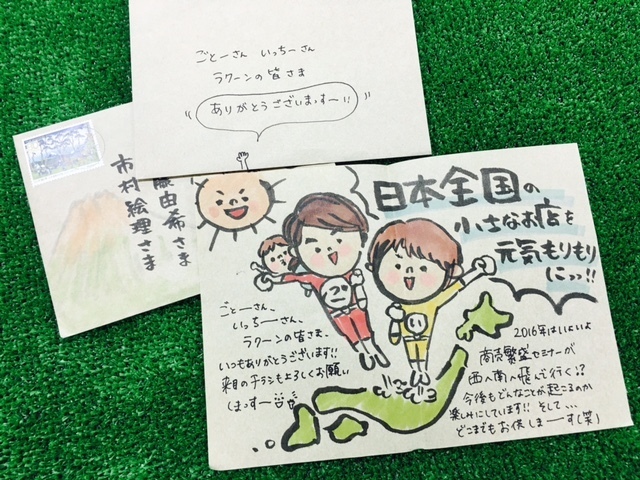 ごとーさん いっちーさん
ラクーンの皆さま
ありがとうございまっす〜!!
由希さま
市村絵理さま
日本全国の
小さなお店を
元気もりもり
にっっ!!
ごとーさん、
いっちーさん、
ラクーンの皆さま、
いつもありがとうございます!!
来月のチラシもよろしくお願い
しまっすー
ご
い
2016年はいよいよ
商売繁盛セミナーが
西へ南へ飛んで行く!?
今後もどんなことが起こるのか
楽しみにしています!! そして...
どこまでもお供しまーす(笑)